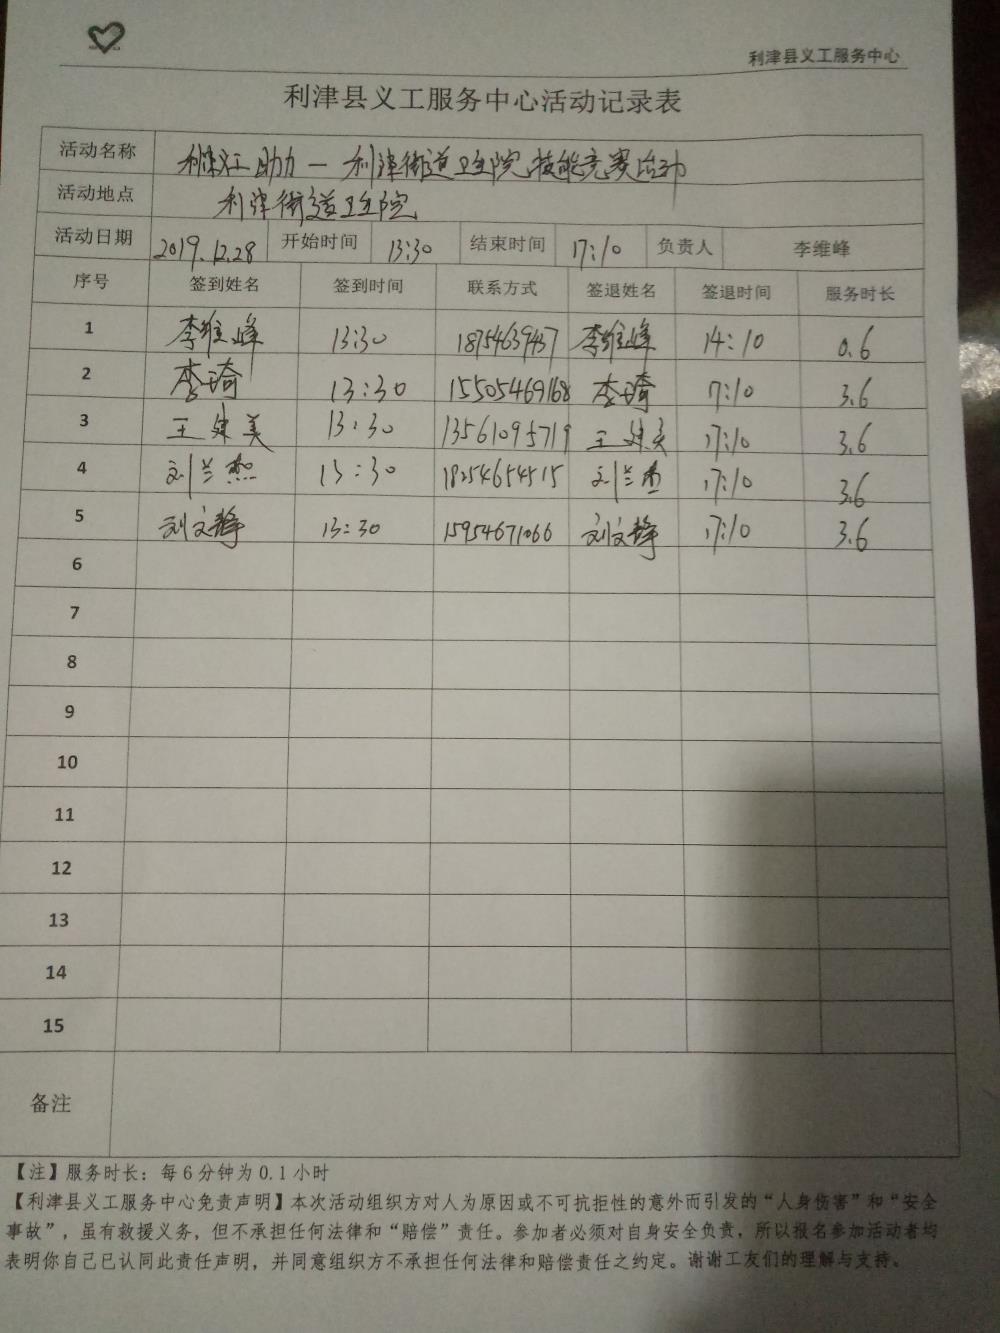 利津县义工服务中心
利津县义工服务中心活动记录表
活动名称 利津义工助力一利津街道卫生院技能竞赛活动
活动地点 利津街道卫生院
活动日期 2019.12.28 开始时间 13:30 结束时间 17:10 负责人 李维峰
序号 签到姓名 签到时间 联系方式 签退姓名 签退时间 服务时长
1 李维峰 13:30 18754639437 李维峰 14:10 0.6
2 李琦 13:30 15505469168 李琦 17:10 3.6
3 王建美 13:30 13561095719 王建美 17:10 3.6
4 刘兰杰 13:30 18254654515 刘兰杰 17:10 3.6
5 刘文静 13:30 15954671066 刘文静 17:10 3.6
6
7
8
9
10
11
12
13
14
15
备注
【注】服务时长：每6分钟为0.1小时
【利津县义工服务中心免责声明】本次活动组织方对人为原因或不可抗拒性的意外而引发的“人身伤害”和“安全
事故”，虽有救援义务，但不承担任何法律和“赔偿”责任。参加者必须对自身安全负责，所以报名参加活动者均
表明你自己已认同此责任声明，并同意组织方不承担任何法律和赔偿责任之约定。谢谢工友们的理解与支持。